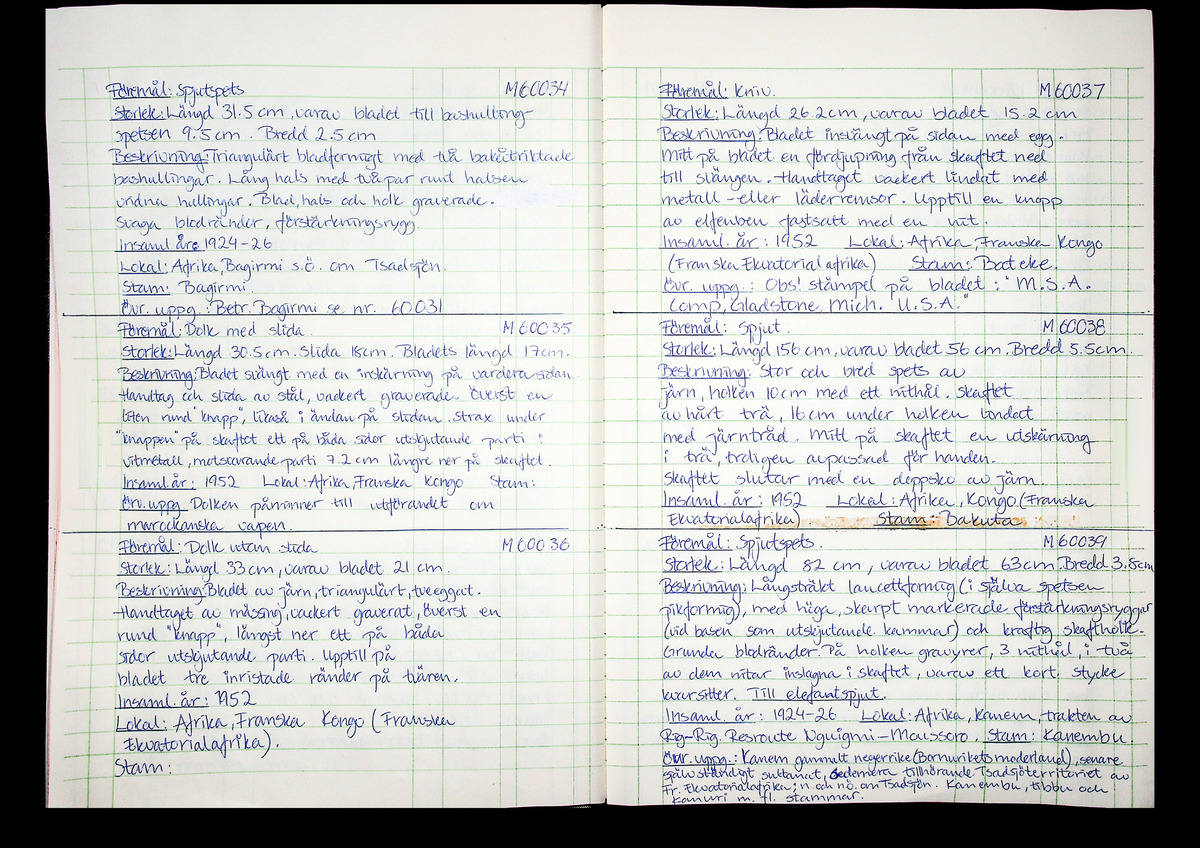 Föremål: Spjutspets M60034
Storlek: Längd 31.5 cm, varav bladet till bashulling-
spetsen 9.5 cm. Bredd 2.5 cm
Beskrivning: Triangulärt bladformigt med två bakåtriktade
bashullingar. Lång hals med två par runt halsen
vridna hullingar. Blad, hals och holk graverade.
Svaga blodränder, förstärkningsrygg.
Insaml. år: 1924-26
Lokal: Afrika, Bagirmi s.ö. om Tsadsjön.
Stam: Bagirmi.
Övr. uppg.: Betr. Bagirmi se nr. 60031
Föremål: Dolk med slida. M60035
Storlek: Längd 30.5 cm. Slida 18 cm. Bladets längd 17 cm.
Beskrivning: Bladet svängt med en inskärning på vardera sidan.
Handtag och slida av stål, vackert graverade. Överst en
liten rund "knapp", likaså i ändan på slidan. Strax under
"knappen" på skaftet ett på båda sidor utskjutande parti i
vitmetall, motsvarande parti 7.2 cm längre ner på skaftet.
Insaml. år: 1952 Lokal: Afrika, Franska Kongo Stam:
Övr. uppg. Dolken påminner till utförandet om
marockanska vapen.
Föremål: Dolk utan slida M60036
Storlek: Längd 33 cm, varav bladet 21 cm.
Beskrivning: Bladet av järn, triangulärt, tveeggat.
Handtaget av mässing, vackert graverat, överst en
rund "knapp", längst ner ett på båda
sidor utskjutande parti. Upptill på
bladet tre inristade ränder på tvären.
Insaml. år: 1952
Lokal: Afrika, Franska Kongo (Franska
Ekvatorialafrika).
Stam:
Föremål: Kniv. M60037
Storlek: Längd 26.2 cm, varav bladet 15.2 cm
Beskrivning: Bladet insvängt på sidan med egg.
Mitt på bladet en fördjupning från skaftet ned
till svängen. Handtaget vackert lindat med
metall- eller läderremsor. Upptill en knopp
av elfenben fastsatt med en nit.
Insaml. år: 1952 Lokal: Afrika, Franska Kongo
(Franska Ekvatorial afrika) Stam: Bateke.
Övr. uppg.: Obs! stämpel på bladet: "M.S.A.
Comp, Gladstone, Mich. U.S.A."
Föremål: Spjut. M60038
Storlek: Längd 156 cm, varav bladet 56 cm. Bredd 5.5 cm.
Beskrivning: Stor och bred spets av
järn, holken 10 cm med ett nithål. Skaftet
av hårt trä, 16 cm under holken lindat
med järntråd. Mitt på skaftet en utskärning
i trä, troligen avpassad för handen.
Skaftet slutar med en doppsko av järn.
Insaml. år: 1952 Lokal: Afrika, Kongo (Franska
Ekvatorialafrika) Stam: Bakuta
Föremål: Spjutspets. M60039
Storlek: Längd 82 cm, varav bladet 63 cm. Bredd 3.8 cm
Beskrivning: Långsträkt lancettformig (i själva spetsen
pikformig), med höga, skarpt markerade förstärkningsryggar
(vid basen som utskjutande kammar) och kraftig skaftholk.
Grunda blodränder. På holken gravyrer, 3 nithål, i två
av dem nitar inslagna i skaftet, varav ett kort stycke
kvarsitter. Till elefantspjut.
Insaml. år: 1924-26 Lokal: Afrika, Kanem, trakten av
Rig-Rig. Resroute Nguigmi-Maussoro. Stam: Kanembu.
Övr. uppg.: Kanem gammalt negerrike (Bornurikets moderland), senare
självständigt sultanat, sedermera tillhörande Tsadsjöterritoriet av
Fr. Ekvatorialafrika; n. och nö. om Tsadsjön. Kanembu, tibbu och
Kanuri m. fl. stammar.